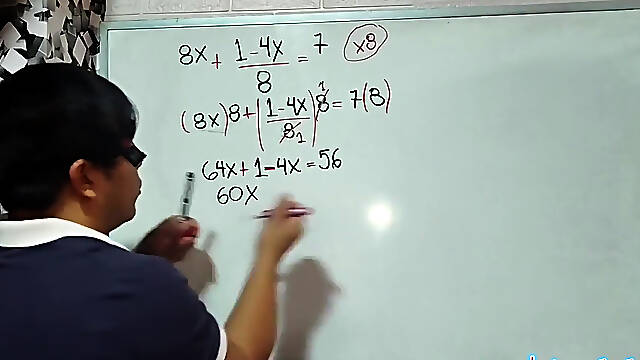 8x + 1-4x/8 = 7 (x8)
(8x)8 + (1-4x/8 1) 8 1 = 7(8)
64x + 1 - 4x = 56
60x